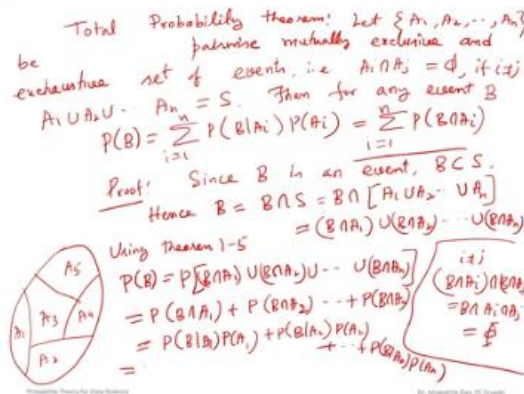 Total Probability theorem: Let {A1, A2, ..., An}
be pairwise mutually exclusive and
exhaustive set of events, i.e Ai∩Aj = ϕ, if i≠j
A1∪A2∪... An = S. Then for any event B
P(B) = n∑i=1 P(B|Ai) P(Ai) = n∑i=1 P(B∩Ai)
Proof: Since B is an event, B⊂S.
Hence B = B∩S = B∩[A1∪A2.. ∪An]
= (B∩A1)∪(B∩A2)...∪(B∩An)
Using theorem 1-5
P(B) = P[(B∩A1)∪(B∩A2)∪...∪(B∩An)]
= P(B∩A1) + P(B∩A2) ... + P(B∩An)
= P(B|A1)P(A1) + P(B|A2)P(A2) + ... + P(B|An)P(An)
=
i≠j
(B∩Ai)∩(B∩Aj)
= B∩Ai∩Aj
= ϕ
A5
A1 A3 A4
A2
Probability Theory for Data Science